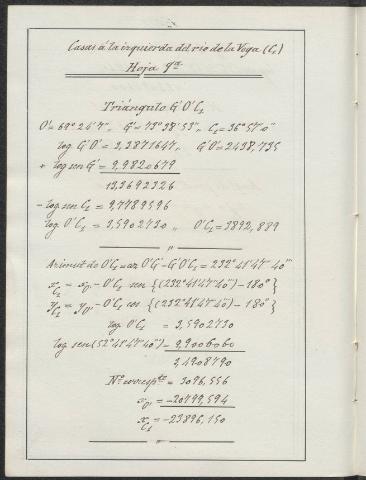 Casas á la izquierda del rio de la Vega (C₂)
Hoja 9ª
Triángulo G'O'C₂
O'= 69° 24' 7", G'= 73° 38' 53", C₂= 36° 57' 0"
log G'O' = 3,3871647, G'O'= 2438,735
+ log sen G'= 9,9820679
13,3692326
- log sen C₂ = 9,7789596
log O'C₂ = 3,5902730 „ O'C₂= 3892,889
"
Azimut de O'C₂= az O'G'-G'O'C₂= 232° 41' 47" 40'''
x_C₂ = x_O' - O'C₂ sen {(232° 41' 47" 40''') - 180°}
y_C₂ = y_O' - O'C₂ cos {(232° 41' 47" 40''') - 180°}
log O'C₂ = 3,5902730
log sen (52° 41' 47" 40''') = 9,9006060
3,4908790
Nº corresp.te = 3096,556
x_O' = -20799,594
x_C₂ = -23896,150
"